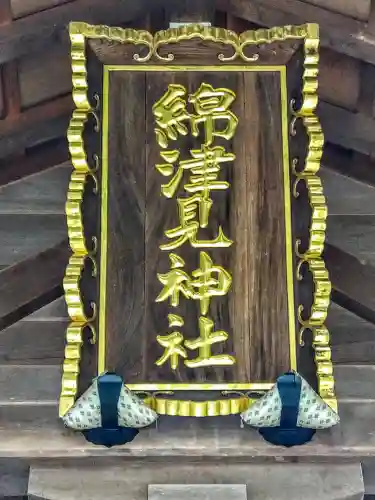 綿津見神社